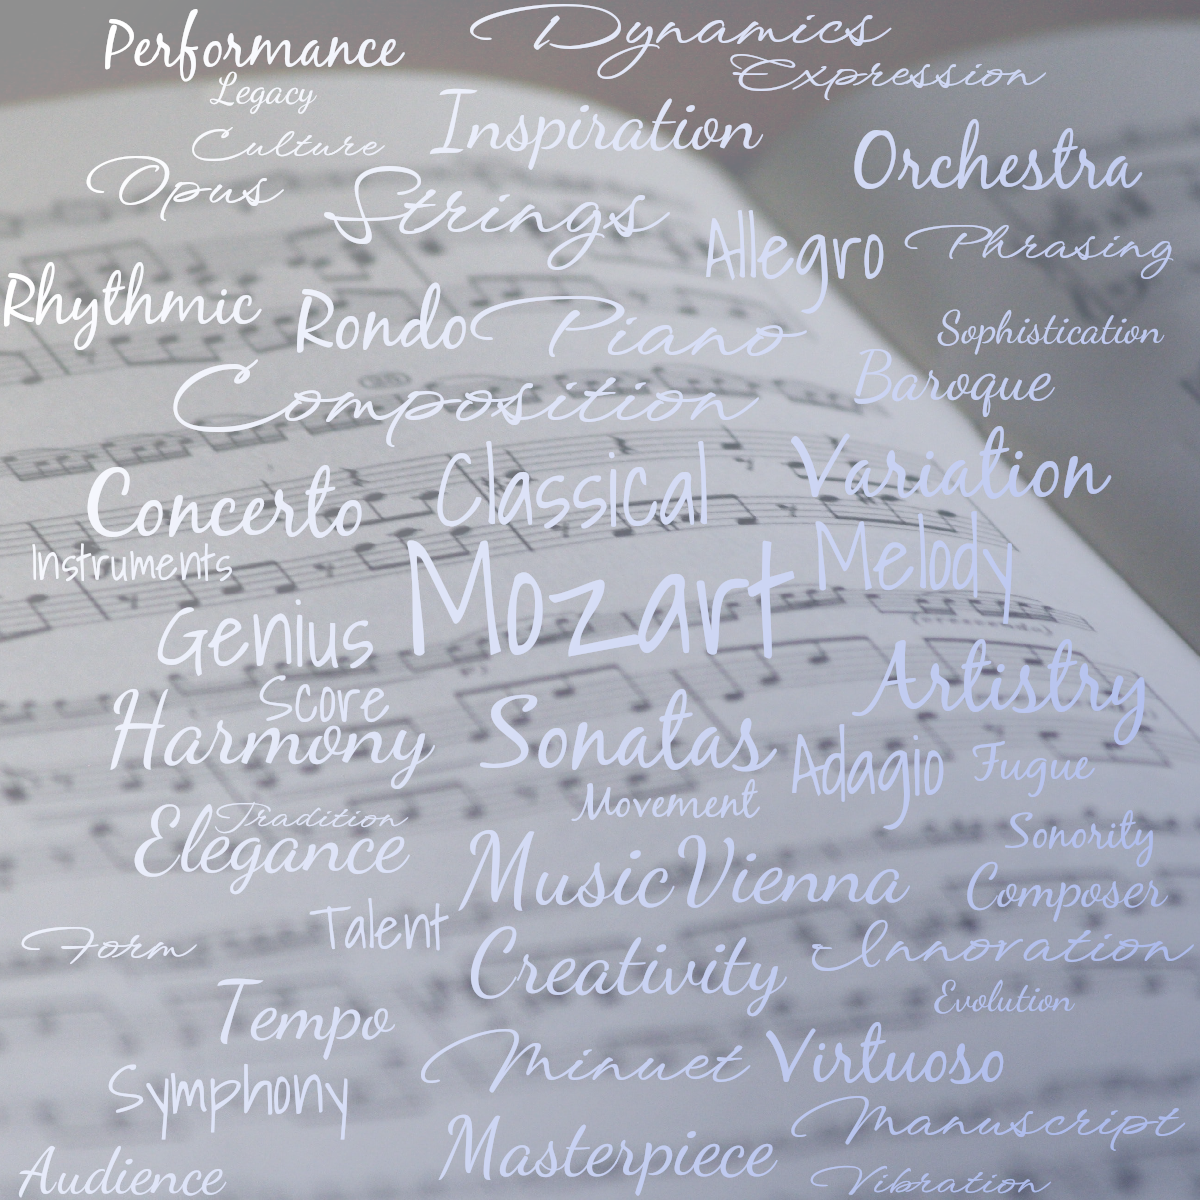 Performance
Dynamics
Expression
Legacy
Inspiration
Culture
Orchestra
Opus
Strings
Allegro
Phrasing
Rhythmic
Rondo
Piano
Sophistication
Baroque
Composition
Concerto
Classical
Variation
Instruments
Mozart
Melody
Genius
Score
Artistry
Harmony
Sonatas
Adagio
Fugue
Movement
Tradition
Elegance
Sonority
Music
Vienna
Composer
Talent
Form
Creativity
Innovation
Evolution
Tempo
Minuet
Virtuoso
Symphony
Manuscript
Masterpiece
Audience
Vibration